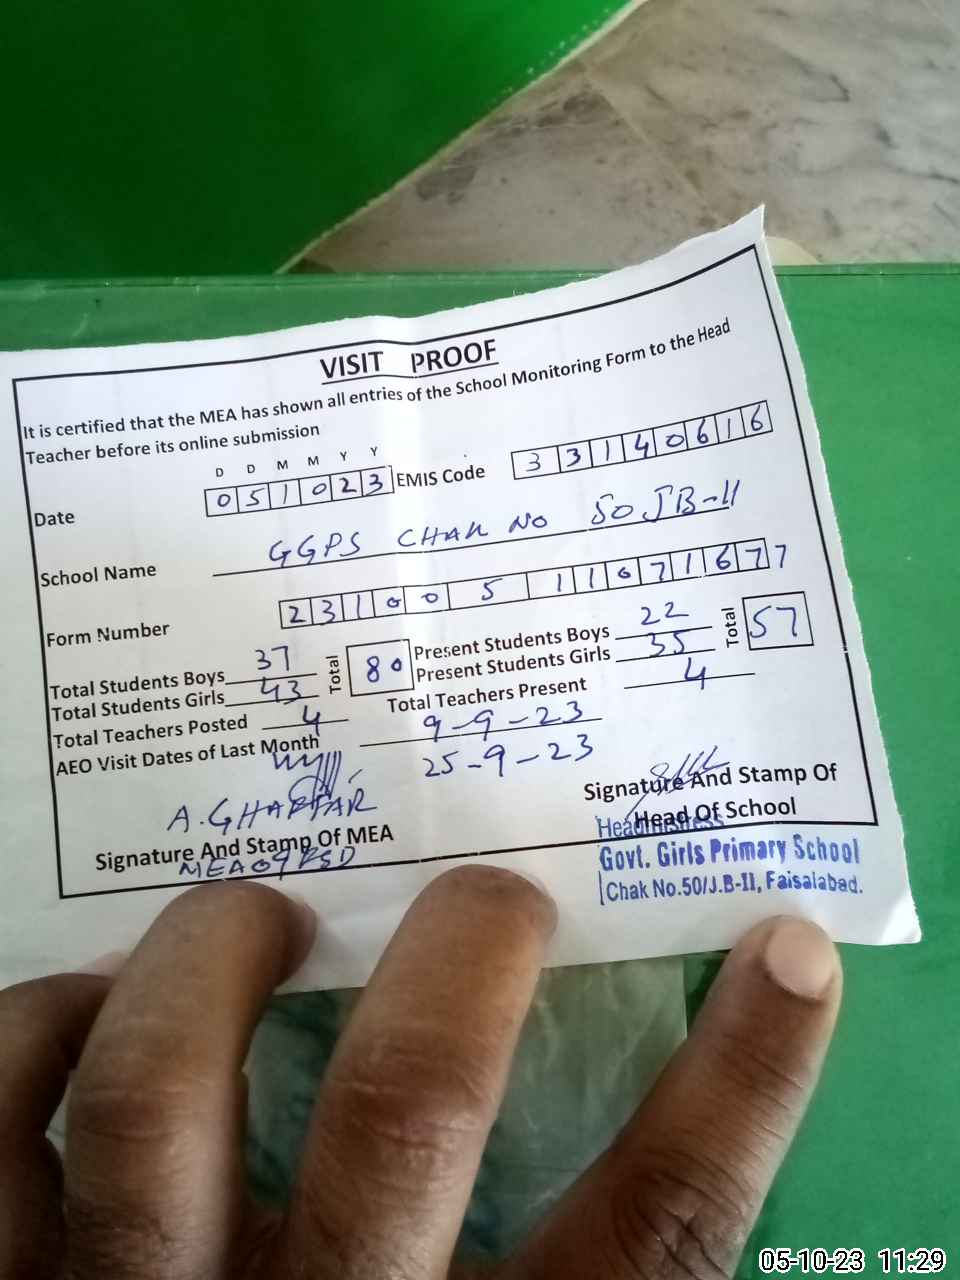 VISIT PROOF
It is certified that the MEA has shown all entries of the School Monitoring Form to the Head
Teacher before its online submission
D D M M Y Y
Date 051023 EMIS Code 33140616
School Name GGPS CHAK NO 50 JB-II
Form Number 2310051107167 7
Total Students Boys 37 Total 80 Present Students Boys 22 Total 57
Total Students Girls 43 Present Students Girls 35
Total Teachers Posted 4 Total Teachers Present 4
AEO Visit Dates of Last Month 9-9-23
25-9-23
A.GHAFFAR
Signature And Stamp Of MEA
MEA09 FSD
Signature And Stamp Of
Head Of School
Headmistress
Govt. Girls Primary School
Chak No.50/J.B-II, Faisalabad.
05-10-23 11:29